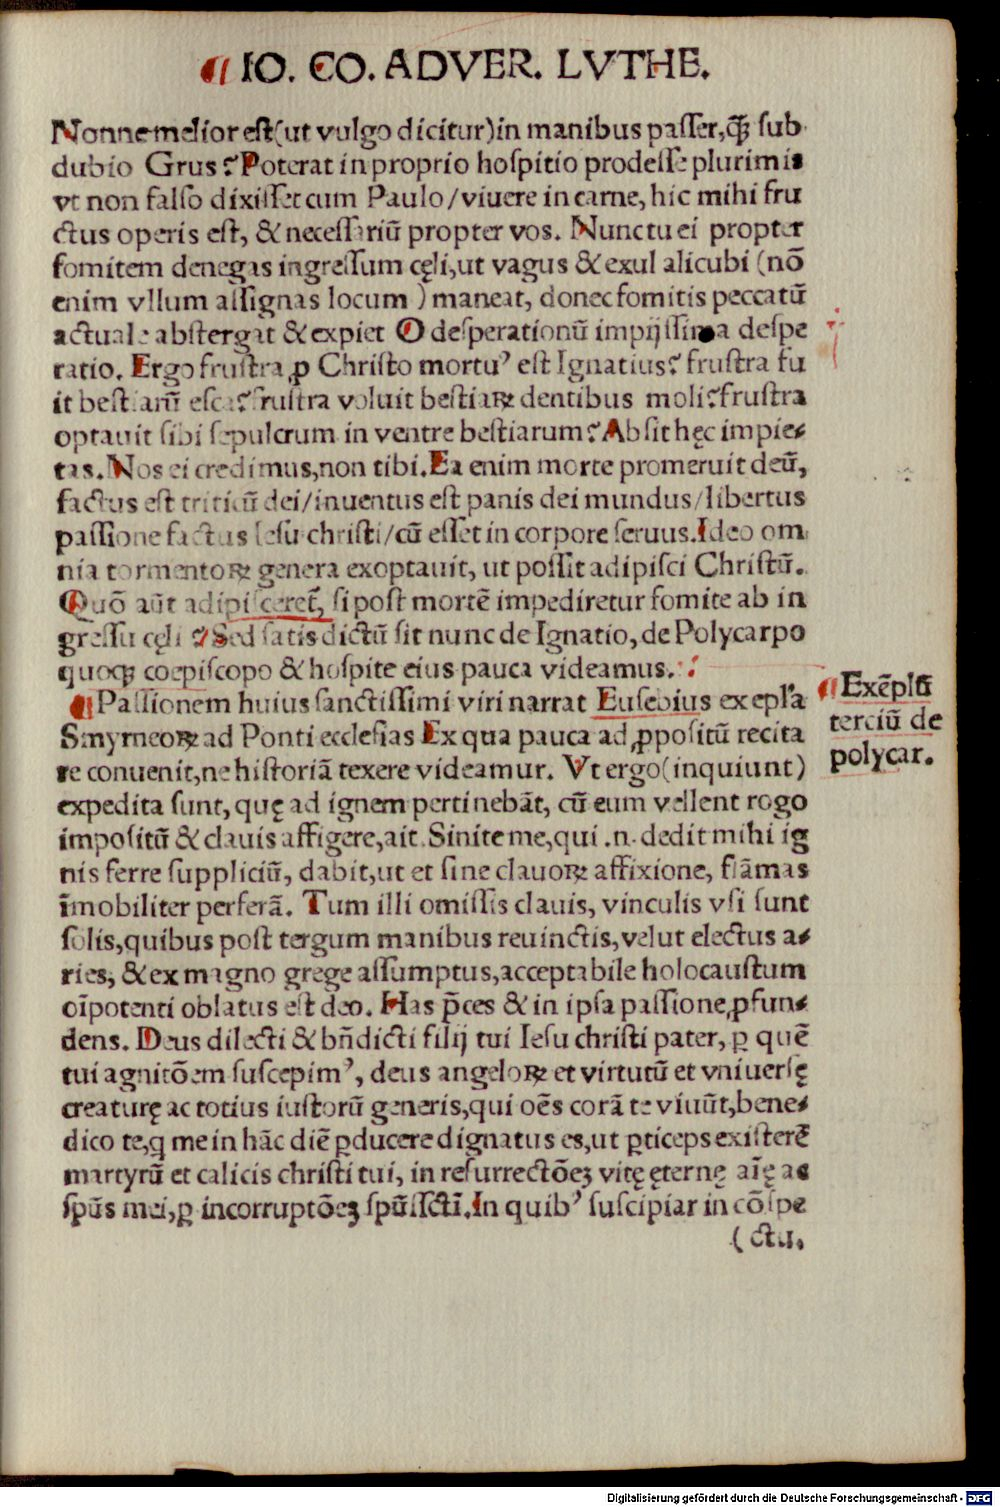 ¶ IO. CO. ADVER. LVTHE.
Nonne melior est (ut vulgo dicitur) in manibus passer, q̃ꝫ sub
dubio Grus? Poterat in proprio hospitio prodesse plurimis
vt non falso dixisset cum Paulo / viuere in carne, hic mihi fru
ctus operis est, & necessariũ propter vos. Nunc tu ei propter
fomitem denegas ingressum cęli, ut vagus & exul alicubi (nõ
enim vllum assignas locum) maneat, donec fomitis peccatũ
actuale abstergat & expiet O desperationũ impijssima despe
ratio. Ergo frustra ꝓ Christo mortuꝰ est Ignatius? frustra fu
it bestiarũ esca? frustra voluit bestiaꝝ dentibus moli? frustra
optauit sibi sepulcrum in ventre bestiarum? Absit hęc impie⸗
tas. Nos ei credimus, non tibi. Ea enim morte promeruit deũ,
factus est triticũ dei / inuentus est panis dei mundus / libertus
passione factus Iesu christi / cũ esset in corpore seruus. Ideo om
nia tormentoꝝ genera exoptauit, ut possit adipisci Christũ.
Quõ aũt adipisceret᷑, si post mortẽ impediretur fomite ab in
gressu cęli? Sed satis dictũ sit nunc de Ignatio, de Polycarpo
quoqꝫ coepiscopo & hospite eius pauca videamus.
¶ Passionem huius sanctissimi viri narrat Eusebius ex epl'a
Smyrneoꝝ ad Ponti ecclesias Ex qua pauca ad ꝓpositũ recita
re conuenit, ne historiã texere videamur. Vt ergo (inquiunt)
expedita sunt, quę ad ignem pertinebãt, cũ eum vellent rogo
impositũ & clauis affigere, ait. Sinite me, qui .n. dedit mihi ig
nis ferre suppliciũ, dabit, ut et sine clauoꝝ affixione, flãmas
ĩmobiliter perferã. Tum illi omissis clauis, vinculis vsi sunt
solis, quibus post tergum manibus reuinctis, velut electus a⸗
ries, & ex magno grege assumptus, acceptabile holocaustum
oĩpotenti oblatus est deo. Has p̃ces & in ipsa passione ꝓfun⸗
dens. Deus dilecti & bñdicti filij tui Iesu christi pater, ꝑ quẽ
tui agnitõem suscepimꝰ, deus angeloꝝ et virtutũ et vniuersę
creaturę ac totius iustorũ generis, qui oẽs corã te viuũt, bene⸗
dico te, q me in hãc diẽ ꝑducere dignatus es, ut ꝑticeps existerẽ
martyrũ et calicis christi tui, in resurrectõeꝫ vitę ęternę aĩę ac
spũs mei, ꝑ incorruptõeꝫ spũssctĩ. In quibꝰ suscipiar in cõspe
( ctu.
¶ Exẽplũ
terciũ de
polycar.
Digitalisierung gefördert durch die Deutsche Forschungsgemeinschaft - DFG